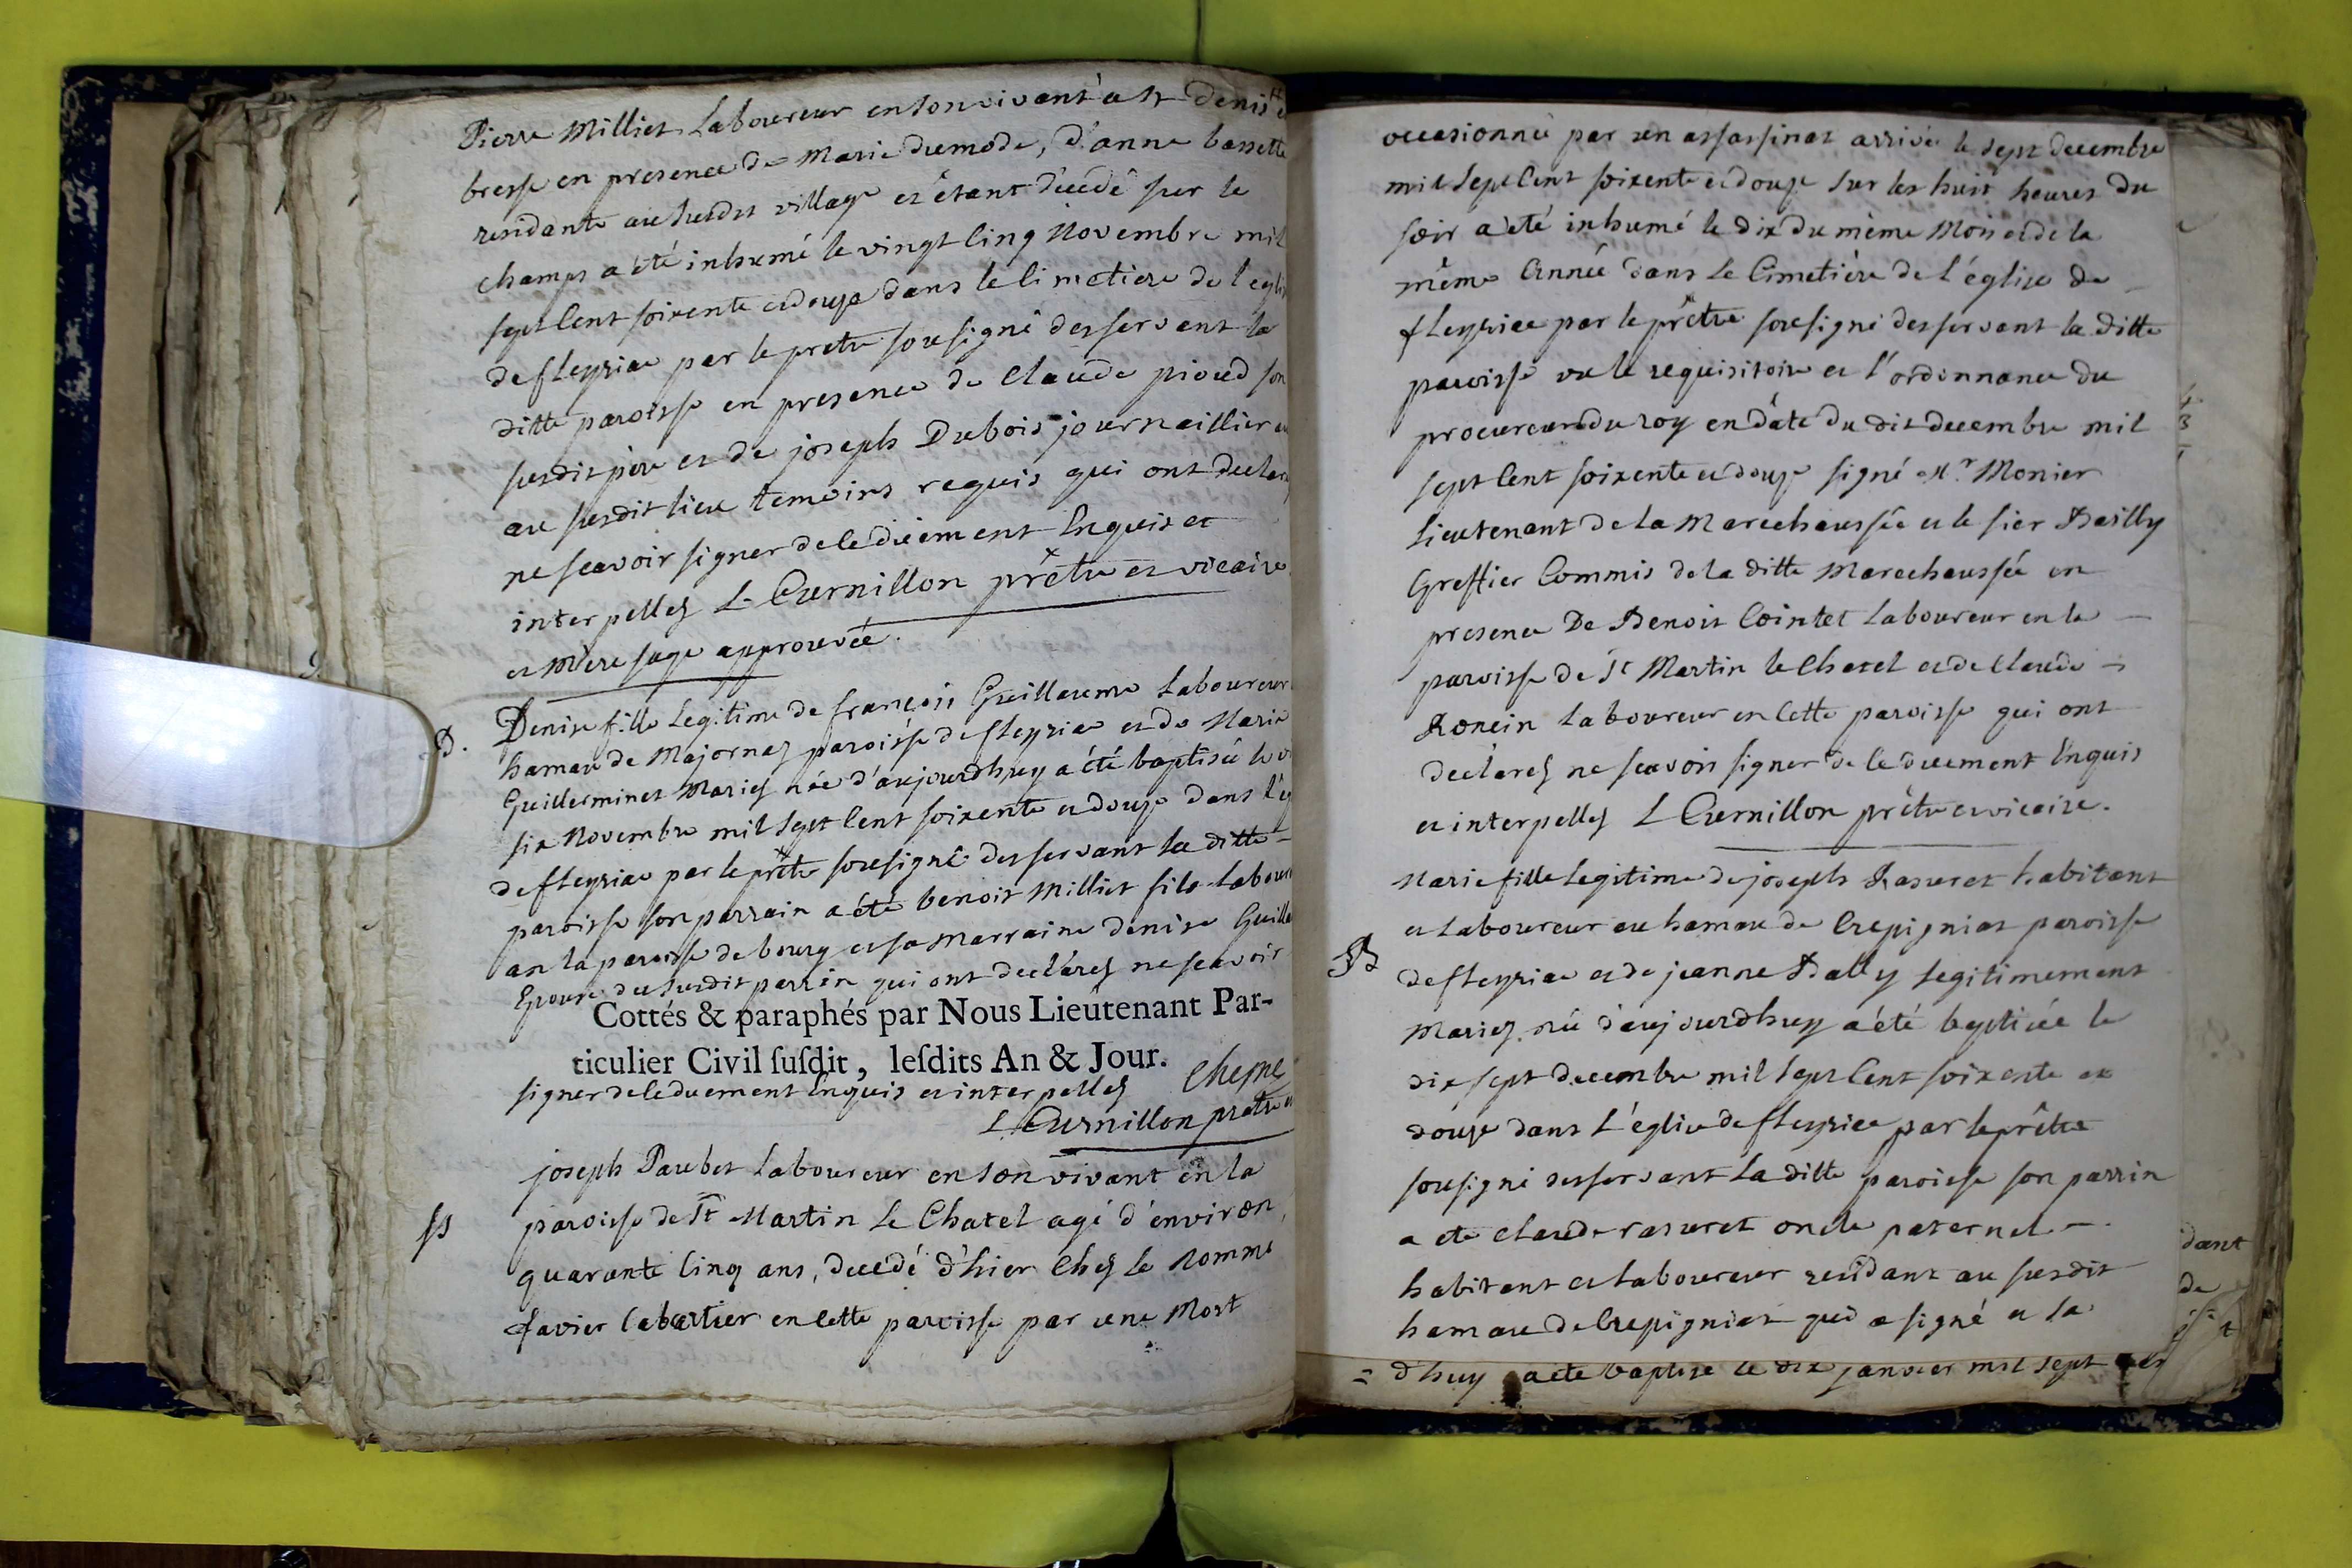 Pierre Milliet Laboureur en son vivant a St Denis
bresse en presence de Marie Dumode, d'anne bassette
residante au susdit village et étant décedé sur le
champs a été inhumé le vingt Cinq Novembre mil
sept Cent soixente et douze dans le Cimetiere de l'eglis
de fleyriac par le pretre sousigné desservent la
ditte paroisse en presence de Claude pioud son
susdit père et de joseph Dubois journaillier
au susdit lieu temoins requis qui ont declar
ne scavoir signer de ce duement Enquis et
interpellez L. Curnillon prêtre et vicaire
et mere sage approuvée.
D. Denise fille legitime de françois Guillaume Laboureur
hamau de Majornaz paroisse de fleyriac et de Marie
Guillerminet Mariez née d'aujourdhuy a été baptisée le v
six Novembre mil sept Cent soixente et douze dans l'eg
de fleyriac par le prêtre sousigné desservant la ditte
paroisse son parrain a été benoit Milliet fils labour
en la paroisse de bourg et sa marraine denise Guilla
Epouse du susdit parrin qui ont declarez ne scavoir
Cottés & paraphés par Nous Lieutenant Par-
ticulier Civil ſuſdit, leſdits An & Jour.
signer de ce duement Enquis et interpellez
L Curnillon pretre et
joseph Paubet Laboureur en son vivant en la
paroisse de St Martin Le Chatel agé d'environ
quarante Cinq ans, decedé d'hier Chez le Nommé
favier Cabartier en Cette paroisse par une Mort
occasionnée par un assassinat arrivée le sept decembre
mil sept Cent soixente et douze sur les huit heures du
soir a été inhumé le dix du même Mois et de la
même Année dans Le Cimetière de L'église de
fleyriac par le prêtre sousigné desservant la ditte
paroisse vu le requisitoire et l'ordonnance du
procureur du roy en date du dit decembre mil
sept Cent soixente et douze signé Mr Monier
Lieutenant de La Marechaussée et le sier Bailly
Greffier Commis de la ditte Marechaussée en
presence De Benoit Cointet Laboureur en la
paroisse de St Martin le Chatel et de Claude
Roncin Laboureur en Cette paroisse qui ont
declarez ne scavoir signer de ce duement Enquis
et interpellez L Curnillon prêtre et vicaire.
Marie fille legitime de joseph Rasuret habitant
et Laboureur au hamau de Crepigniat paroisse
B de fleyriac et de jeanne Bally legitimement
Mariez née d'aujourdhuy a été baptisée le
dix sept decembre mil sept Cent soixente et
douze dans L'église de fleyriac par le prêtre
sousigné desservant La ditte paroisse son parrin
a ete claude rasuret oncle paternel
habitant et laboureur residant au susdit
hamau de Crepigniat qui a signé et sa
dhuy a ete baptise le dix janvier mil sept
dant
de